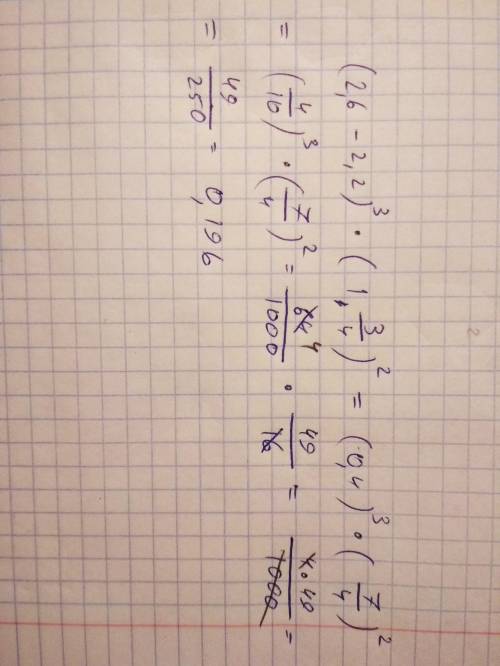 (2,6 - 2,2)³ · (1, 3/4)² = (0,4)³ · (7/4)²
= (4/10)³ · (7/4)² = 64 4/1000 · 49/16 = 4·49/1000 =
= 49/250 = 0,196